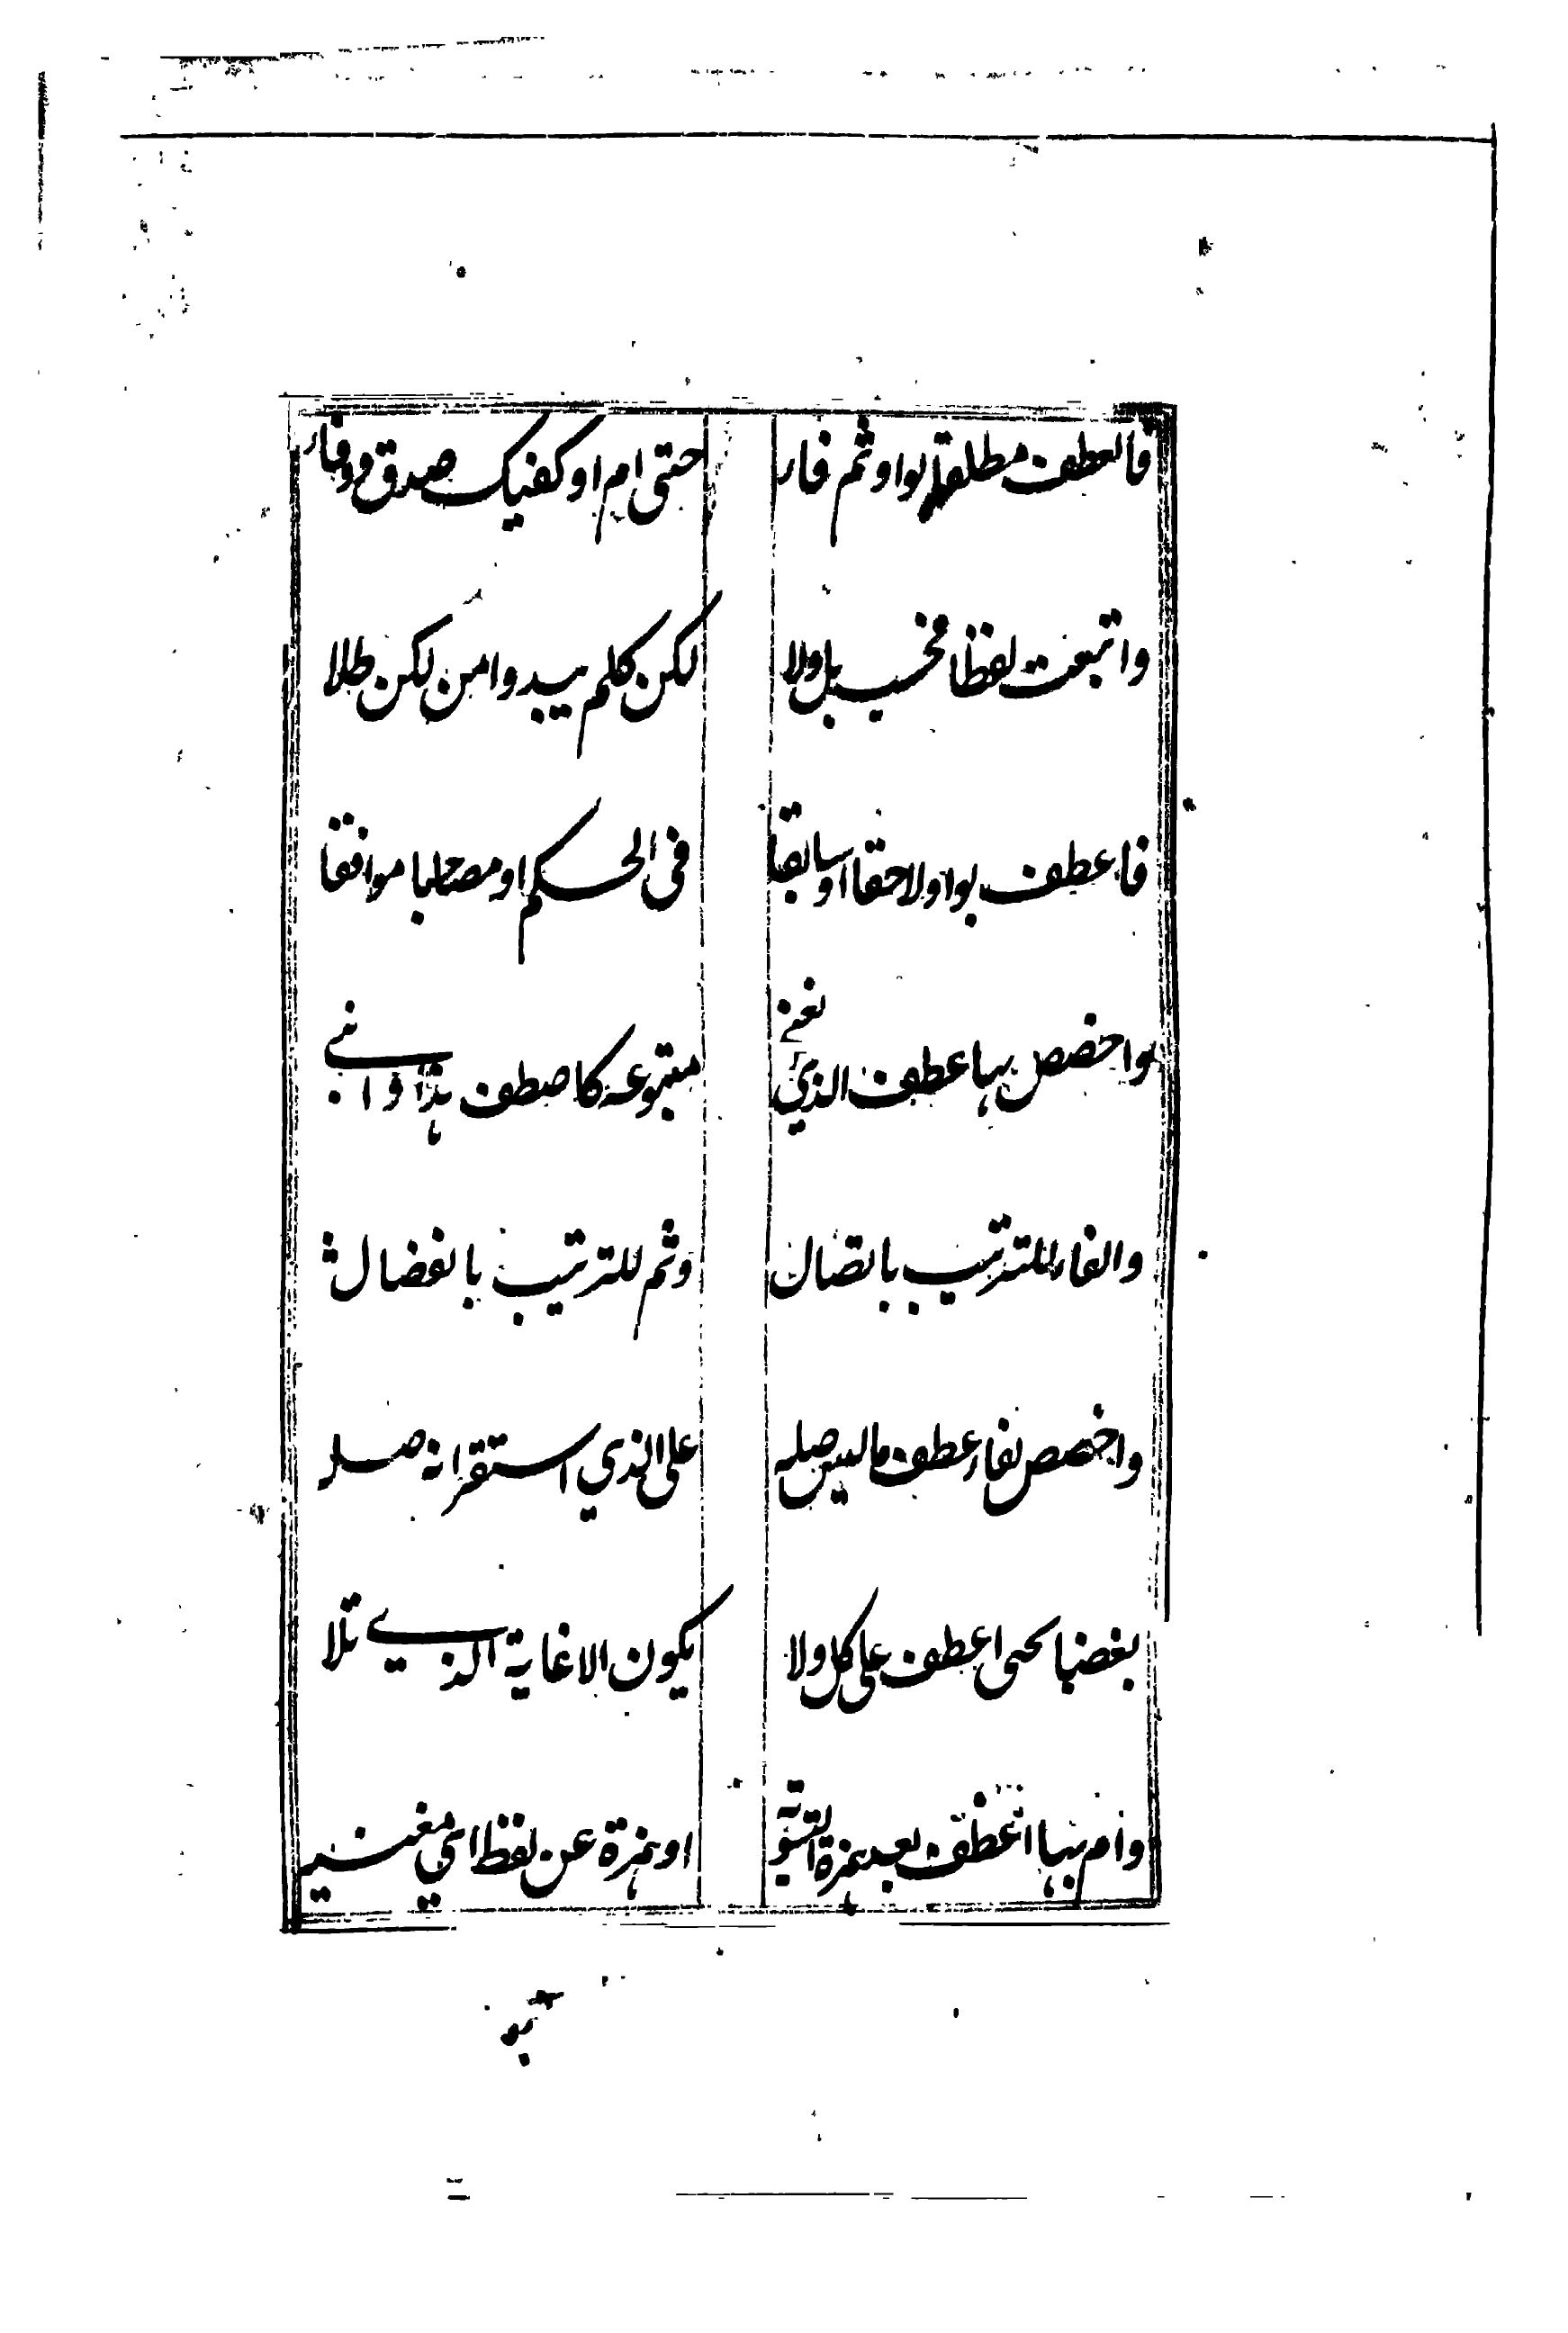 فالعطف مطلقا بواو ثم فا حتى ام او كفيك صدق ووفا
واتبعت لفظا فحسب بل ولا لكن كلم يبدوا من لكن طلا
فاعطف بواو لاحقا او سابقا فى الحكم او مصاحبا موافقا
واخصص بها عطف الذي لا يغني متبوعه كاصطف هذا وابني
والفاء للترتيب باتصال وثم للترتيب بانفصال
واخصص بفاء عطف ما ليس صله على الذي استقر انه صله
بعضا بحتى اعطف على كل ولا يكون الا غاية الذي تلا
وام بها اعطف بعد همزة التسوية او همزة عن لفظ اي مغنيه